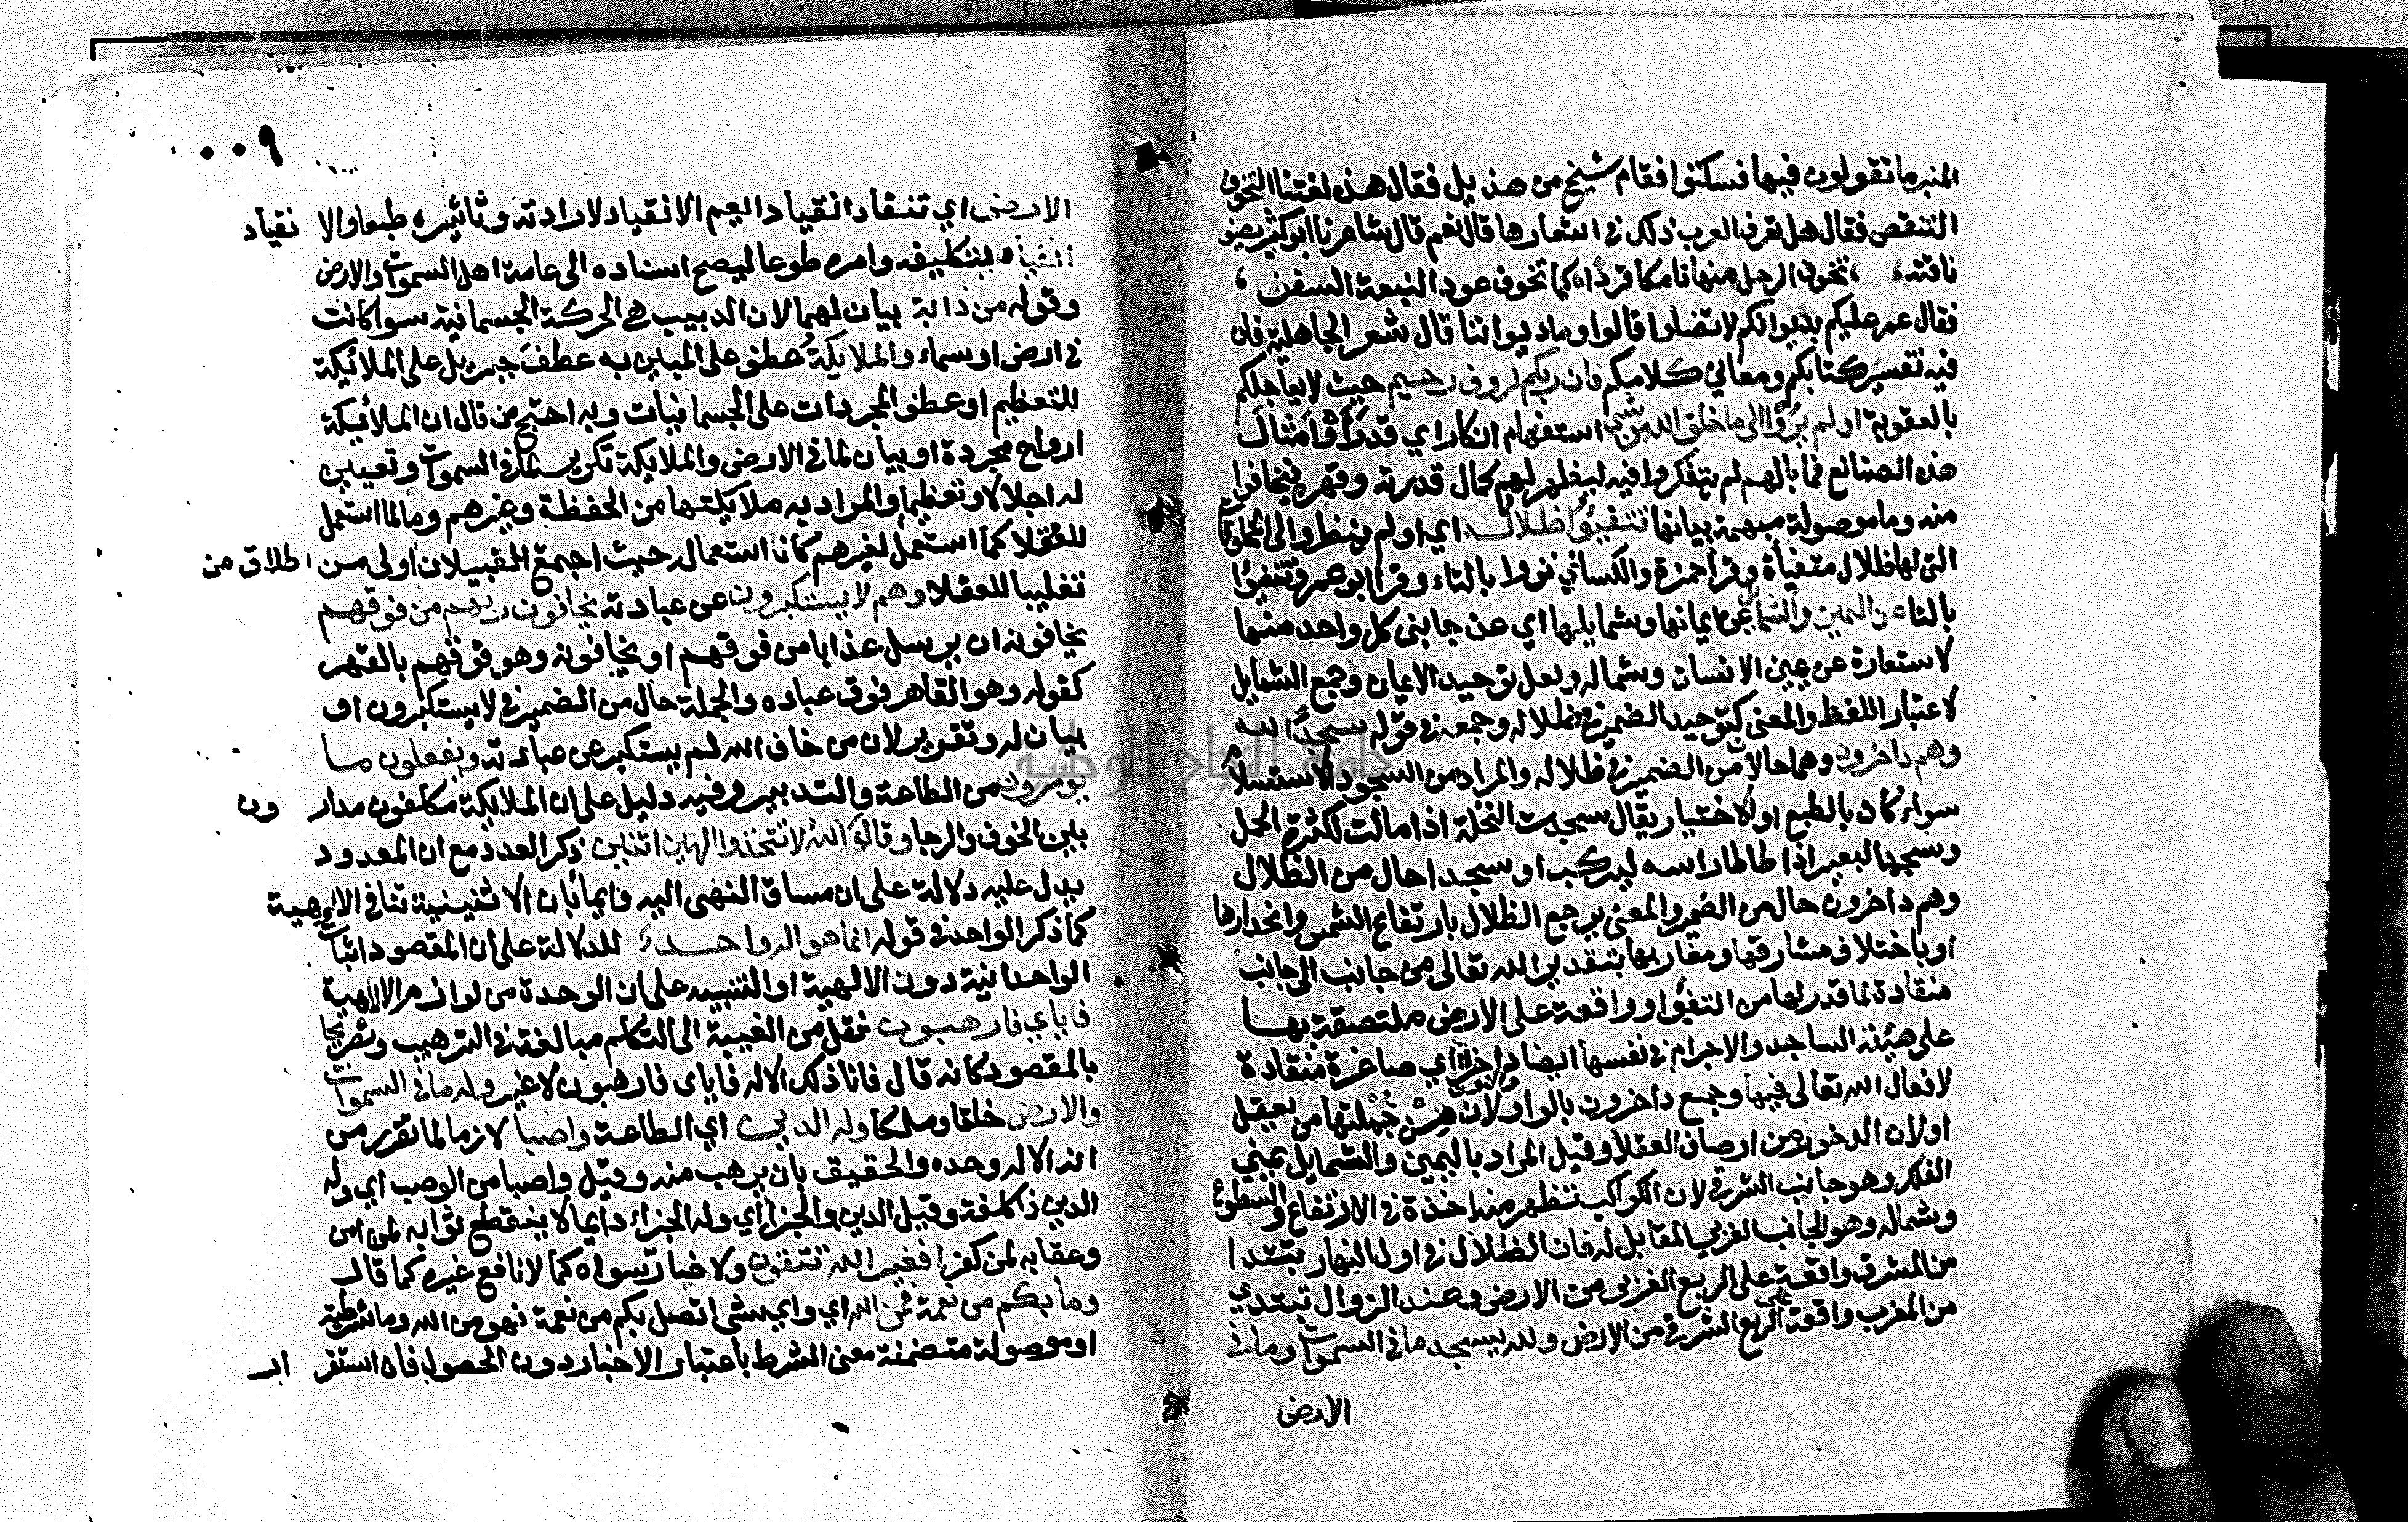 المنبر ما تقولون فيها فسكتوا فقام شيخ من هذيل فقال هذه لغتنا التخوف
التنقص فقال هل تعرف العرب ذلك في اشعارها قال نعم قال شاعرنا ابو كثير يصف
ناقته، تخوف الرحل منها تامكا قردا، كما تخوف عود النبعة السفن،
فقال عمر عليكم بديوانكم لا تضلوا قالوا وما ديواننا قال شعر الجاهلية فان
فيه تفسير كتابكم ومعاني كلامكم فان ربكم لروف رحيم حيث لا يعاجلكم
بالعقوبة اولم يروا الى ما خلق الله من شي استفهام انكار اي قد راوا امثال
هذه الصنائع فما بالهم لم يتفكروا فيه ليظهر لهم كمال قدرته وقهره فيخافوا
منه وما موصولة مبهمة بيانها تتفيؤا ظلاله اي اولم ينظروا الى المخلوقات
التي لها ظلال متفيأة وقرأ حمزة والكسائي تروا بالتاء وقرا ابو عمرو تتفيؤا
بالتا عن اليمين والشمايل عن ايمانها وشمايلها اي عن جانبي كل واحد منها
لاستعارة عن يمين الانسان وشماله ولعل توحيد الايمان وجمع الشمايل
لاعتبار اللفظ والمعنى كتوحيد الضمير في ظلاله وجمعه في قوله سجدا لله
وهم داخرون وهما حالان من الضمير في ظلاله والمراد من السجود الاستسلام
سواء كان بالطبع او الاختيار يقال سجدت النخلة اذا مالت لكثرة الحمل
وسجد البعير اذا طاطا راسه ليركب او سجدا حال من الظلال
وهم داخرون حال من الضمير والمعنى يرجع الظلال بارتفاع الشمس وانحدارها
او باختلاف مشارقها ومغاربها بتقدير الله تعالى من جانب الى جانب
منقادة لما قدر لها من التفيؤ او واقعة على الارض ملتصقة بها
على هيئة الساجد والاجرام في نفسها ايضا داخرة اي صاغرة منقادة
لافعال الله تعالى فيها وجمع داخرون بالواو لان من جملتها من يعقل
اولان الدخور من اوصاف العقلا وقيل المراد باليمين والشمايل يمين
الفلك وهو جانب الشرقي لان الكواكب تظهر منه اخذة في الارتفاع والسطوع
وشماله وهو الجانب الغربي المقابل له فان الظلال في اول النهار تبتدا
من المشرق واقعة على الربع الغربي من الارض وعند الزوال تبتدي
من المغرب واقعة على الربع الشرقي من الارض ولله يسجد ما في السموات وما في
الارض
٠٠٩
الارض اي تنقاد انقيادا يعم الانقياد لارادته وتاثيره طبعا والانقياد
لتكليفه وامره طوعا ليصح اسناده الى عامة اهل السموات والارض
وقوله من دابة بيان لهما لان الدبيب هي الحركة الجسمانية سوا كانت
في ارض او سماء والملايكة عطف على المبين به عطف جبريل على الملائكة
للتعظيم او عطف المجردات على الجسمانيات وبه احتج من قال ان الملائكة
ارواح مجردة او بيان لما في الارض والملايكة تكرير لما في السموات وتعيين
له اجلالا وتعظيما والمراد به ملايكتها من الحفظة وغيرهم وما لما استعمل
للعقلا كما استعمل لغيرهم كان استعماله حيث اجتمع القبيلان اولى من اطلاق من
تغليبا للعقلا وهم لا يستكبرون عن عبادته يخافون ربهم من فوقهم
يخافونه ان يرسل عذابا من فوقهم او يخافونه وهو فوقهم بالقهر
كقوله وهو القاهر فوق عباده والجملة حال من الضمير في لا يستكبرون او
بيان له وتقرير لان من خاف الله لم يستكبر عن عبادته ويفعلون ما
يومرون من الطاعة والتدبير وفيه دليل على ان الملايكة مكلفون مدارون
بين الخوف والرجا وقال الله لا تتخذوا الهين اثنين ذكر العدد مع ان المعدود
يدل عليه دلالة على ان مساق النهي اليه وايما بان الاثنينية تنافي الالوهية
كما ذكر الواحد في قوله انما هو اله واحد للدلالة على ان المقصود اثبات
الواحدانية دون الالهية او التنبيه على ان الوحدة من لوازم الالهية
فاياي فارهبون نقل من الغيبة الى التكلم مبالغة في الترهيب وتصريحا
بالمقصود كانه قال فانا ذلك الاله فاياي فارهبون لا غير وله ما في السموات
والارض خلقا وملكا وله الدين اي الطاعة واصبا لازما لما تقرر من
انه الاله وحده والحقيق بان يرهب منه وقيل واصبا من الوصب اي وله
الدين ذا كلفة وقيل الدين والجزا اي وله الجزاء دايما لا ينقطع ثوابه لمن امن
وعقابه لمن كفر افغير الله تتقون ولا ضار سواه كما لا نافع غيره كما قال
وما بكم من نعمة فمن الله اي واي شي اتصل بكم من نعمة فهو من الله وما شرطية
او موصولة متضمنة معنى الشرط باعتبار الاخبار دون الحصول فان استقرار